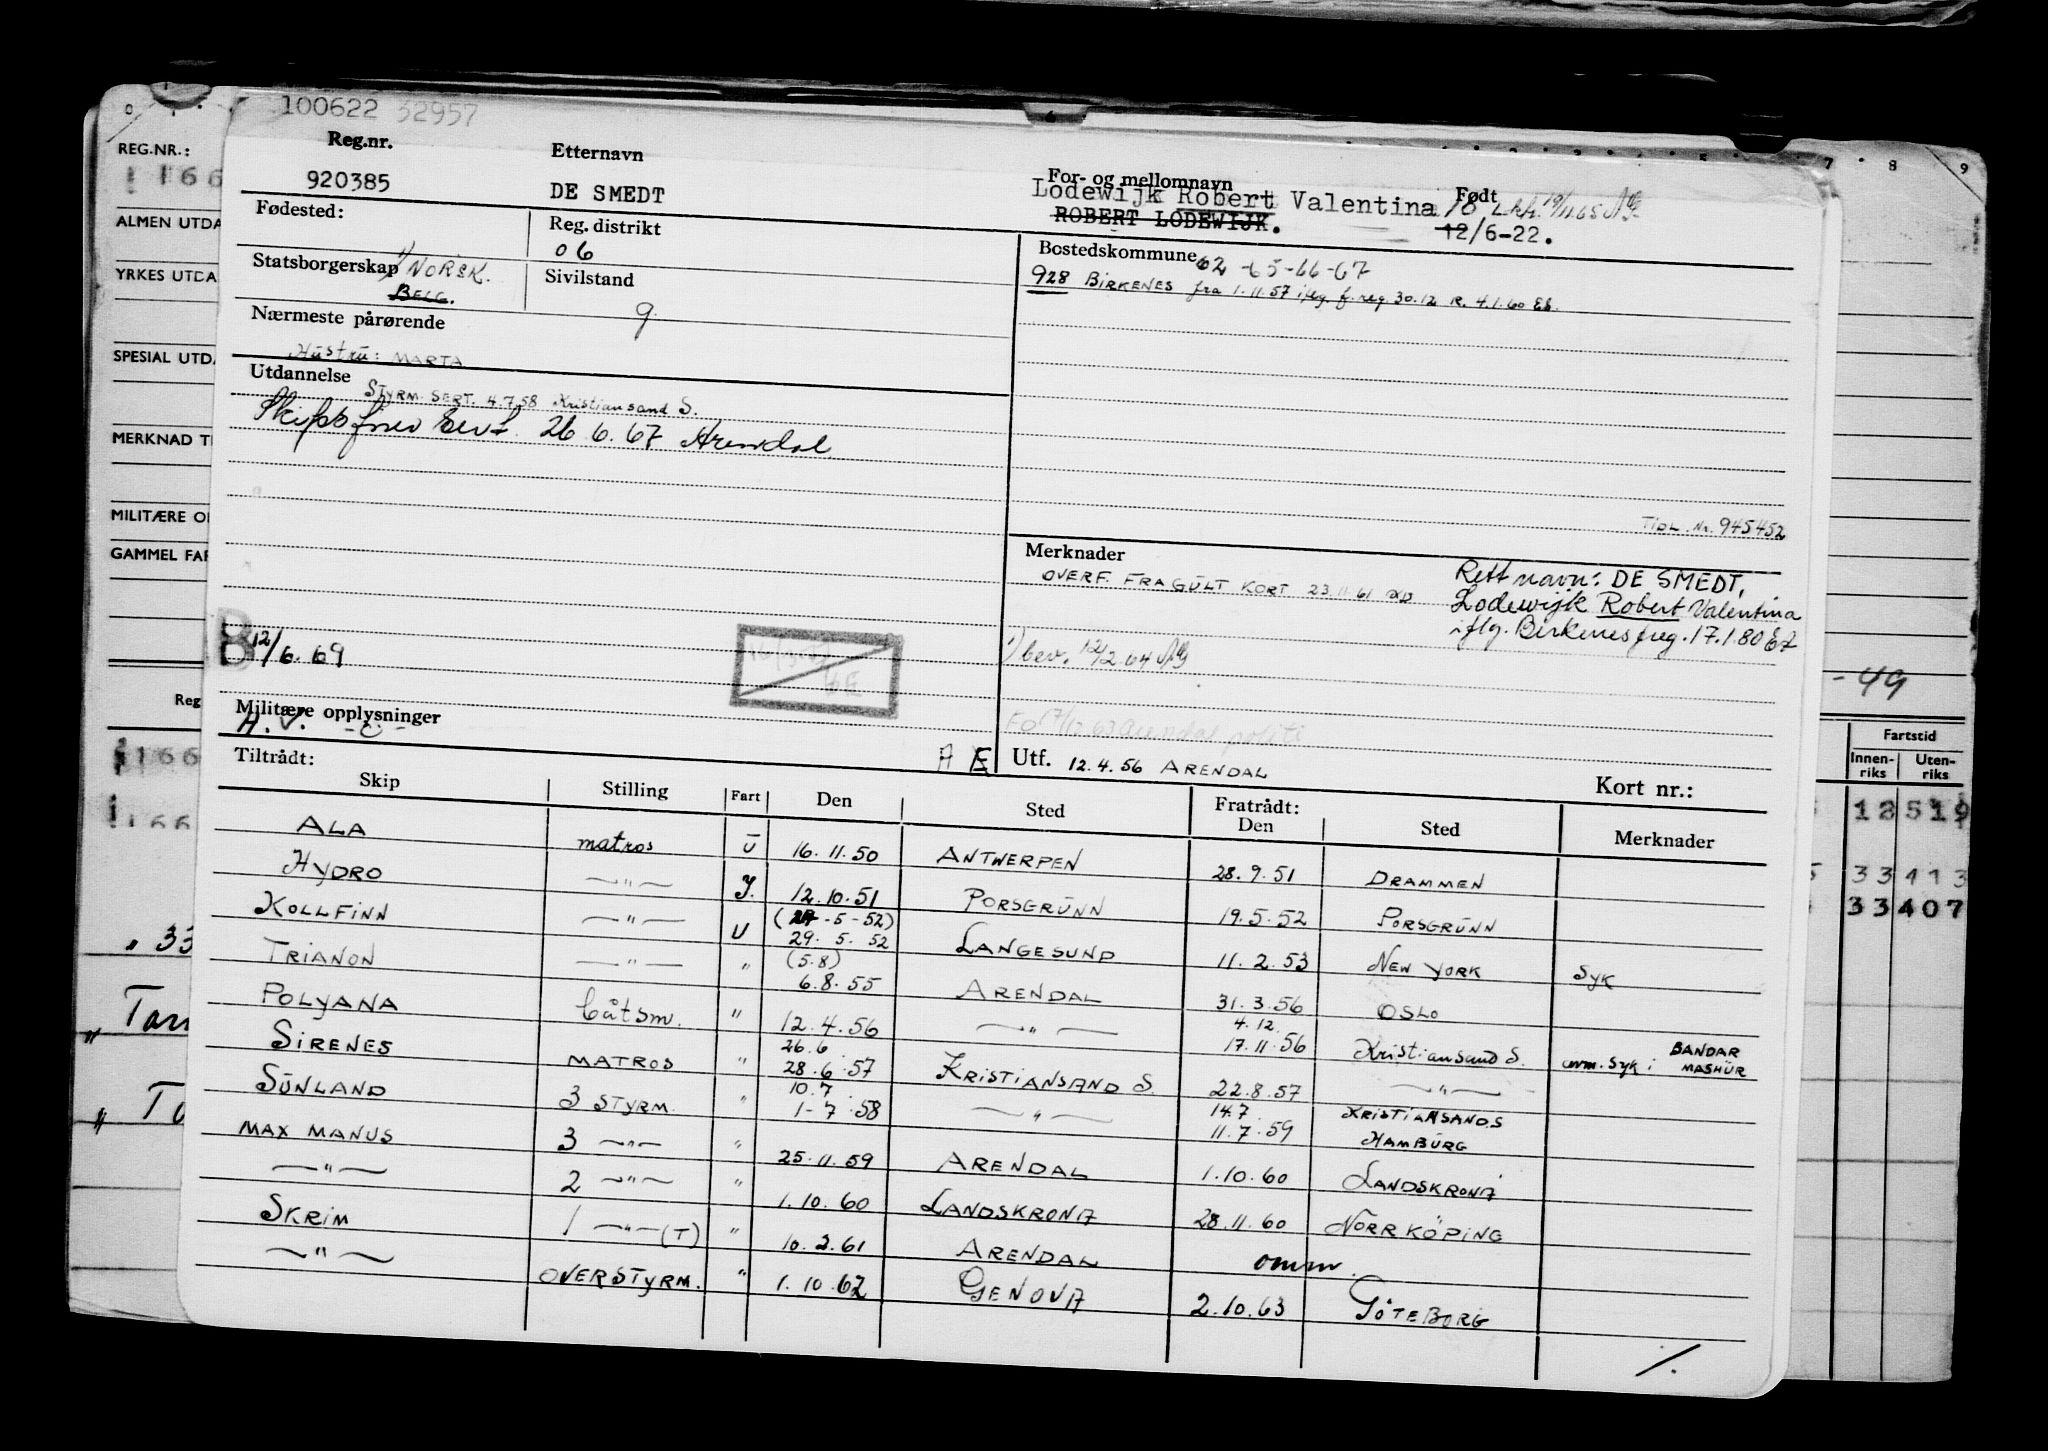 100622 32957
Reg.nr. Etternavn For- og mellomnavn Født
920385 DE SMEDT Lodewijk Robert Valentina
ROBERT LODEWIJK. 12/6-22.
Fødested: Reg. distrikt 06
Statsborgerskap 1) NORSK. BELG.
Sivilstand g
Bostedskommune 62 -65-66-67
928 BIRKENES fra 1.11.57 iflg. f.reg. 30.12 R. 4.1.60
Nærmeste pårørende
Hustru: MARTA
Utdannelse STYRM. SERT. 4.7.58 Kristiansand S.
26.6.67 Arendal
Tidl. Nr. 945452
B 12/6.69
Merknader
OVERF. FRA GULT KORT 23.11.61
Rett navn: DE SMEDT,
Lodewijk Robert Valentina
iflg. Birkenes freg. 17.1.80
1) bev. 12/2 64
17/12.63 Arendal politi
Militære opplysninger
H. V.
A E Utf. 12.4.56 ARENDAL Kort nr.:
Tiltrådt: Fratrådt:
Skip Stilling Fart Den Sted Den Sted Merknader
ALA matros U 16.11.50 ANTWERPEN 28.9.51 DRAMMEN
HYDRO —"— J. 12.10.51 PORSGRUNN 19.5.52 PORSGRUNN
KOLLFINN —"— U (27-5-52) 29.5.52 LANGESUND 11.2.53 NEW YORK SYK
TRIANON —"— " (5.8) 6.8.55 ARENDAL 31.3.56 OSLO
POLYANA båtsm. " 12.4.56 —"— 4.12 17.11.56 Kristiansand S. avm. syk i BANDAR MASHUR
SIRENES MATROS " 26.6 28.6.57 KRISTIANSAND S. 22.8.57 —"—
SUNLAND 3 STYRM. " 10.7 1-7.58 —"— 14.7 11.7.59 KRISTIANSAND.S HAMBURG
MAX MANUS 3 —"— " 25.11.59 ARENDAL 1.10.60 LANDSKRONA
—"— 2 —"— " 1.10.60 LANDSKRONA 28.11.60 NORRKÖPING
SKRIM 1 —"— (T) " 10.2.61 ARENDAL omm.
—"— OVERSTYRM. " 1.10.62 GENOVA 2.10.63 GÖTEBORG
REG.NR.:
166
ALMEN UTDA
YRKES UTDA
SPESIAL UTDA
MERKNAD T
MILITÆRE O
GAMMEL FAR
Reg
166
166
" 33
" Tar
" Ta
7 8 9
- 49
Fartstid
Innen-riks Uten-riks
12 519
33 413
33 407